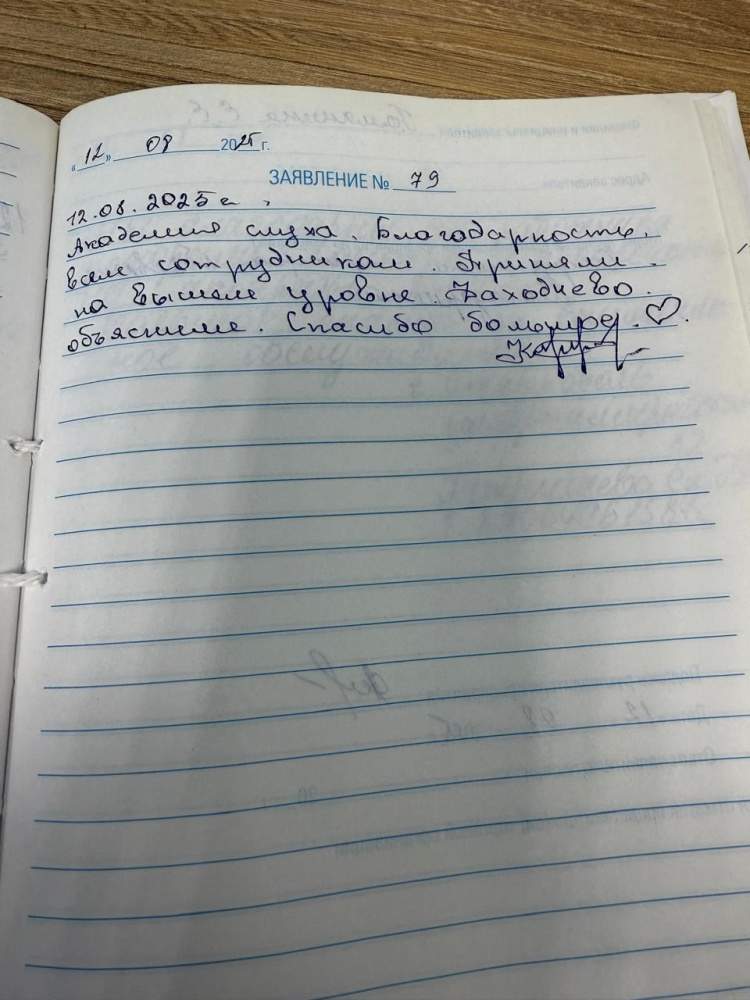 "12" 08 2025 г.
ЗАЯВЛЕНИЕ № 79
12.08.2025 г.
Академия слуха. Благодарность.
всем сотрудникам. Приняли.
на высшем уровне.
объяснили. Спасибо большое. ♡.